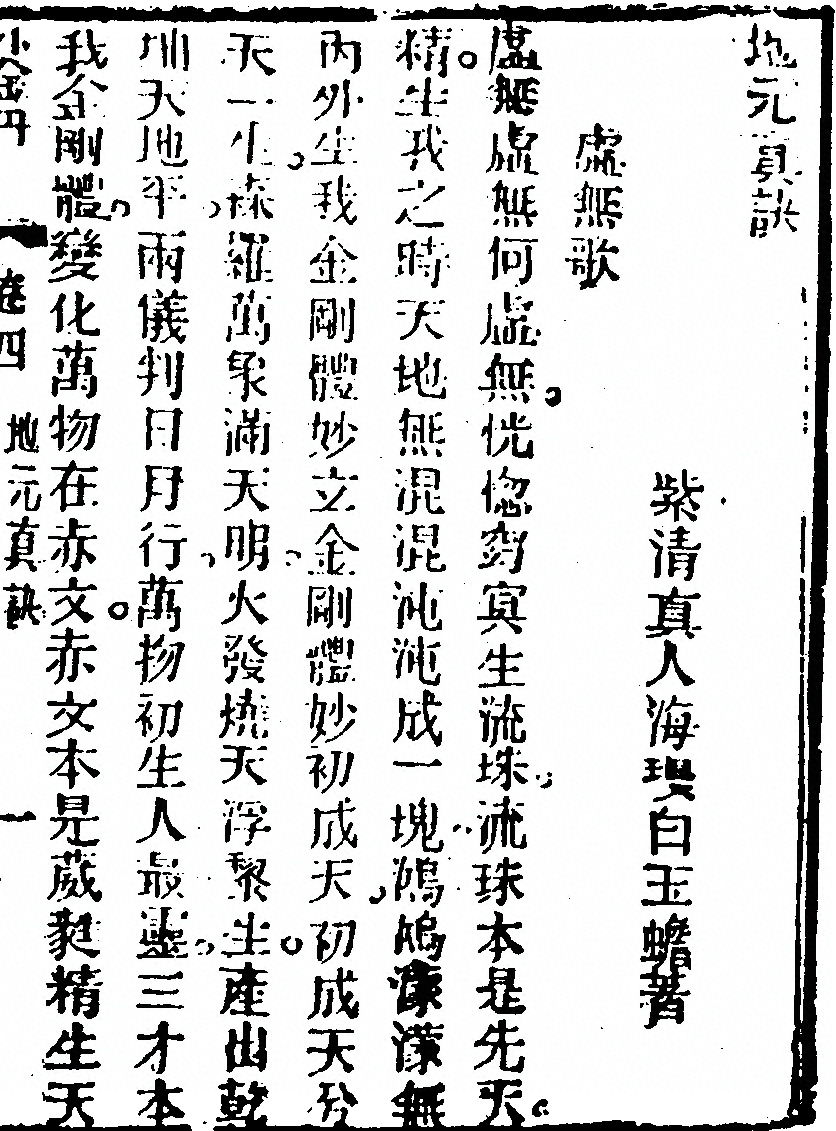 地元真訣
紫清真人海瓊白玉蟾著
虛無歌
虛無虛無何虛無恍惚窈冥生流珠流珠本是先天
精生我之時天地無混混沌沌成一塊鴻鴻濛濛無
內外生我金剛體妙立金剛體妙初成天初成天分
天一生森羅萬象滿天明火發燒天浮黎生產出乾
坤天地平兩儀判日月行萬物初生人最靈三才本
我金剛體變化萬物在赤文赤文本是葳蕤精生天
卷四 地元真訣 一